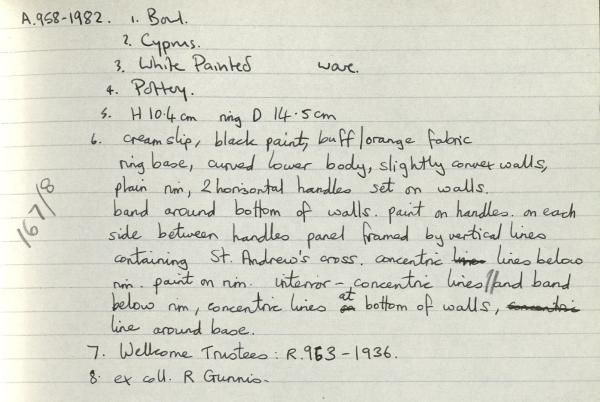 A.958-1982. 1. Bowl.
2. Cyprus.
3. White Painted ware.
4. Pottery.
5. H 10.4cm ring D 14.5cm
6. cream slip, black paint, buff/orange fabric
ring base, curved lower body, slightly convex walls,
plain rim, 2 horisontal handles set on walls.
band around bottom of walls. paint on handles. on each
side between handles panel framed by vertical lines
containing St. Andrew's cross. concentric line lines below
rim. paint on rim. interior - concentric lines // and band
below rim, concentric lines at bottom of walls, concentric
line around base.
7. Wellcome Trustees: R.953-1936.
8. ex coll. R Gunnis.
167/8